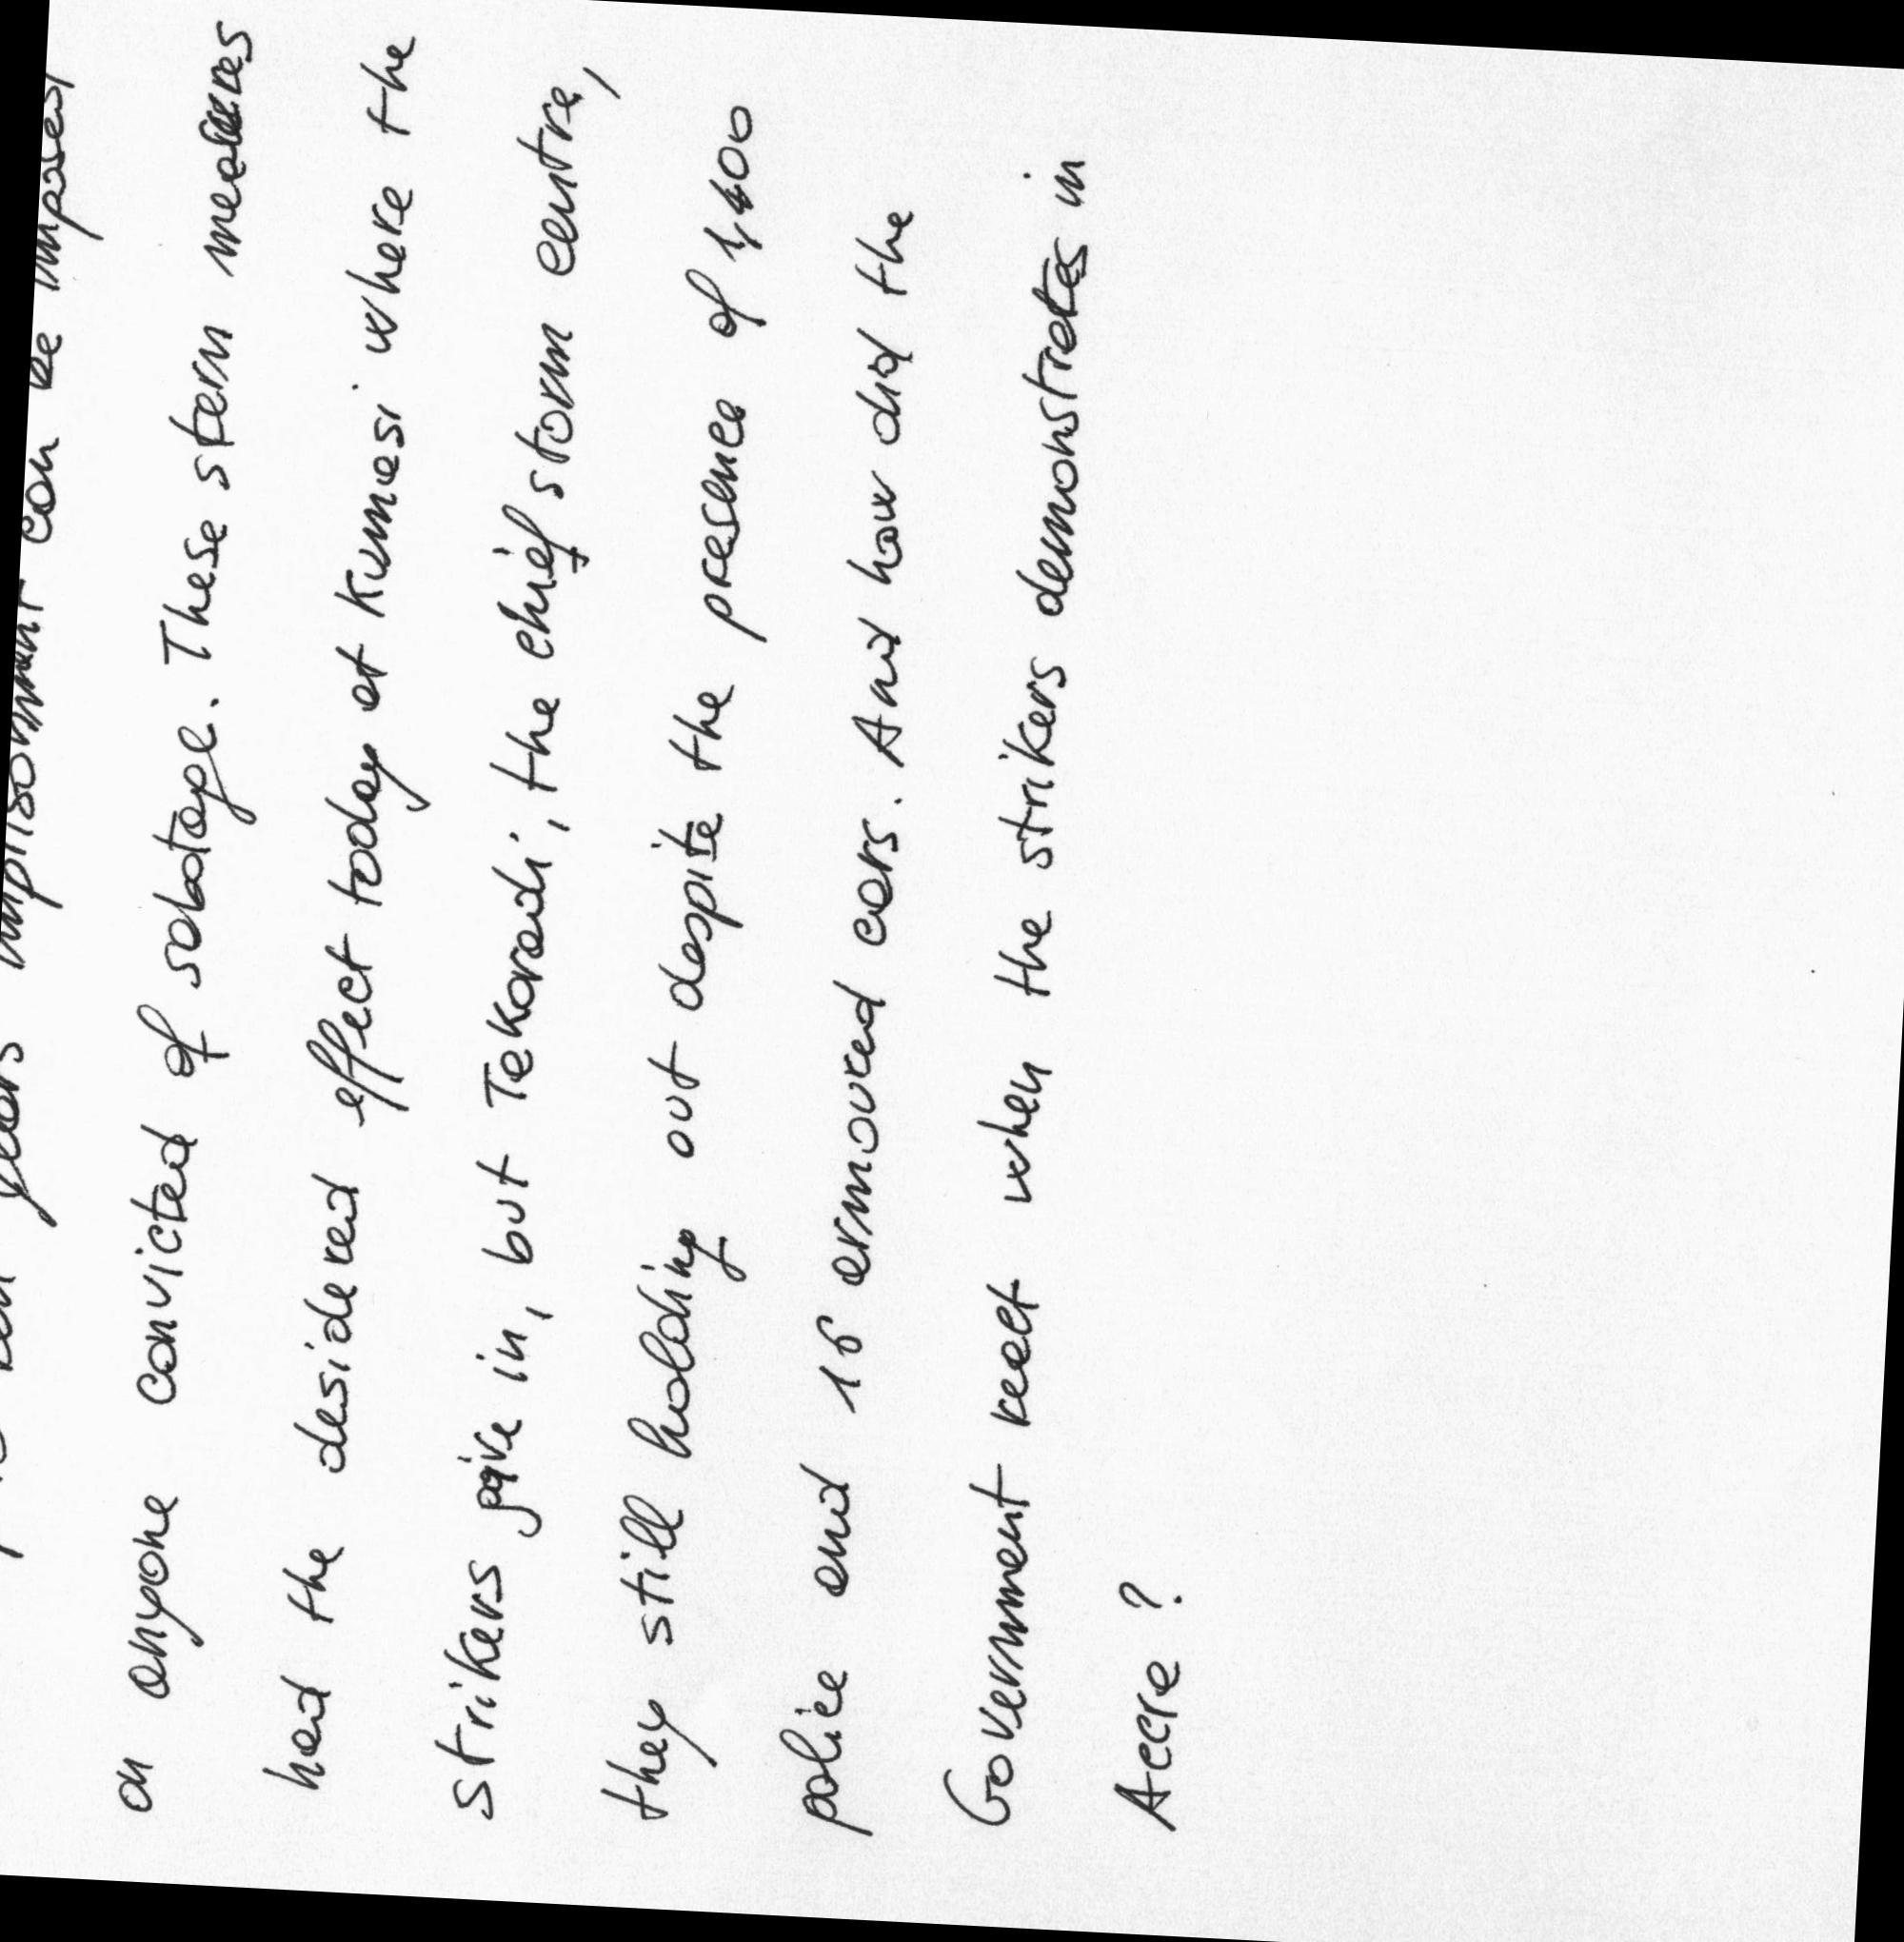 years imprisonment can be imposed
on anyone convicted of sabotage. These stern measures
had the desidered effect today at Kumasi where the
strikers give in, but Tekoradi, the chief storm centre,
they still holding out despite the presence of 1,400
police and 16 armoured cars. And how did the
Government react when the strikers demonstrates in
Accra?